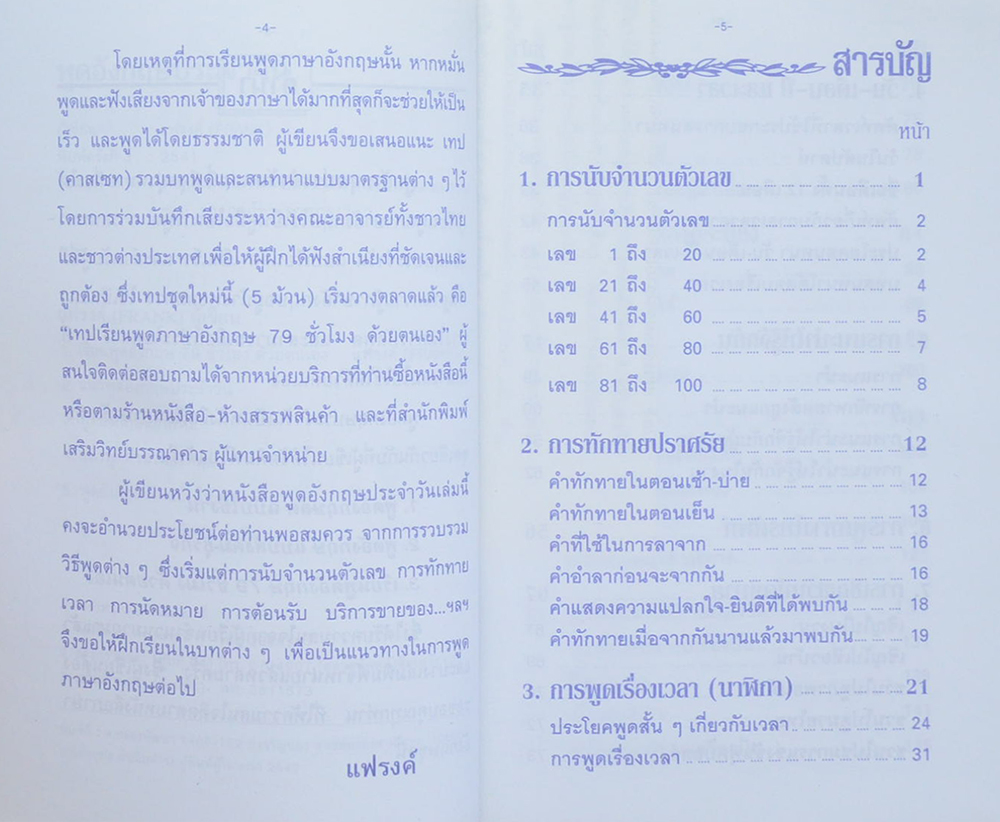 -4-
โดยเหตุที่การเรียนพูดภาษาอังกฤษนั้น หากหมั่น
พูดและฟังเสียงจากเจ้าของภาษาได้มากที่สุดก็จะช่วยให้เป็น
เร็ว และพูดได้โดยธรรมชาติ ผู้เขียนจึงขอเสนอแนะ เทป
(คาสเซท) รวมบทพูดและสนทนาแบบมาตรฐานต่าง ๆ ไว้
โดยการร่วมบันทึกเสียงระหว่างคณะอาจารย์ทั้งชาวไทย
และชาวต่างประเทศ เพื่อให้ผู้ฝึกได้ฟังสำเนียงที่ชัดเจนและ
ถูกต้อง ซึ่งเทปชุดใหม่นี้ (5 ม้วน) เริ่มวางตลาดแล้ว คือ
“เทปเรียนพูดภาษาอังกฤษ 79 ชั่วโมง ด้วยตนเอง” ผู้
สนใจติดต่อสอบถามได้จากหน่วยบริการที่ท่านซื้อหนังสือนี้
หรือตามร้านหนังสือ-ห้างสรรพสินค้า และที่สำนักพิมพ์
เสริมวิทย์บรรณาคาร ผู้แทนจำหน่าย
ผู้เขียนหวังว่าหนังสือพูดอังกฤษประจำวันเล่มนี้
คงจะอำนวยประโยชน์ต่อท่านพอสมควร จากการรวบรวม
วิธีพูดต่าง ๆ ซึ่งเริ่มแต่การนับจำนวนตัวเลข การทักทาย
เวลา การนัดหมาย การต้อนรับ บริการขายของ...ฯลฯ
จึงขอให้ฝึกเรียนในบทต่าง ๆ เพื่อเป็นแนวทางในการพูด
ภาษาอังกฤษต่อไป
แฟรงค์
-5-
สารบัญ
หน้า
1. การนับจำนวนตัวเลข 1
การนับจำนวนตัวเลข 2
เลข 1 ถึง 20 2
เลข 21 ถึง 40 4
เลข 41 ถึง 60 5
เลข 61 ถึง 80 7
เลข 81 ถึง 100 8
2. การทักทายปราศรัย 12
คำทักทายในตอนเช้า-บ่าย 12
คำทักทายในตอนเย็น 13
คำที่ใช้ในการลาจาก 16
คำอำลาก่อนจะจากกัน 16
คำแสดงความแปลกใจ-ยินดีที่ได้พบกัน 18
คำทักทายเมื่อจากกันนานแล้วมาพบกัน 19
3. การพูดเรื่องเวลา (นาฬิกา) 21
ประโยคพูดสั้น ๆ เกี่ยวกับเวลา 24
การพูดเรื่องเวลา 31